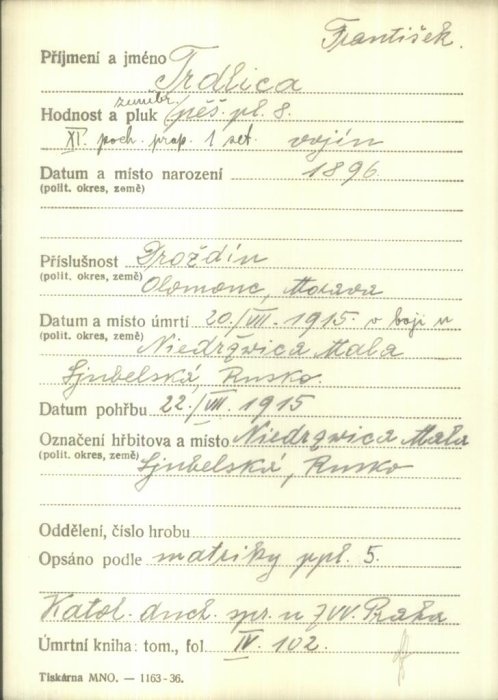 František.
Příjmení a jméno Trdlica
zeměbr.
Hodnost a pluk pěš. pl. 8.
XI. poch. prap. 1 set. vojín
Datum a místo narození 1896
(polit. okres, země)
Příslušnost Droždín
(polit. okres, země) Olomouc, Morava
Datum a místo úmrtí 20./VII. 1915 v boji u
(polit. okres, země) Niedrzwica Mala
Ljubelská, Rusko.
Datum pohřbu 22./VII. 1915
Označení hřbitova a místo Niedrzwica Mala
(polit. okres, země) Ljubelská, Rusko
Oddělení, číslo hrobu
Opsáno podle matriky ppl. 5.
Katol. duch. spr. u ZVV. Praha
Úmrtní kniha: tom., fol. IV. 102.
Tiskárna MNO. — 1163-36.